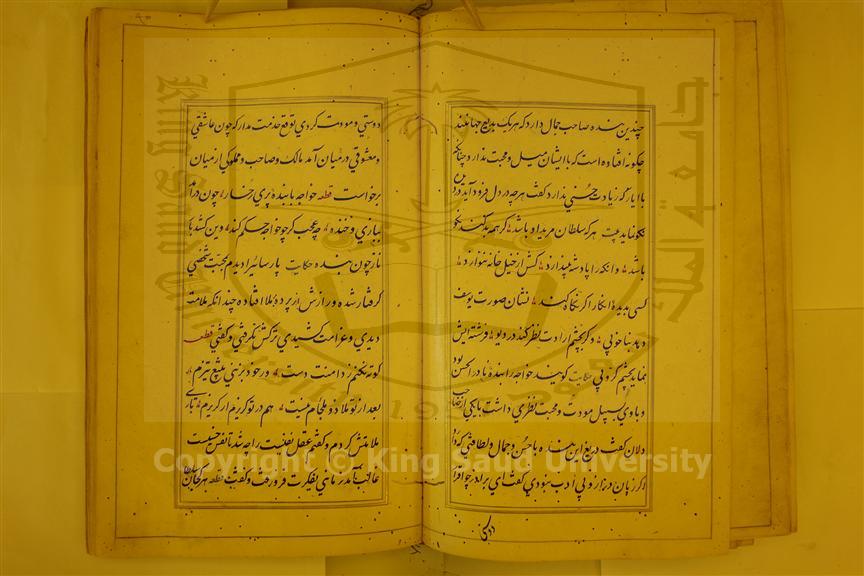 چندین بنده صاحب جمال دارد که هر یک بدیع جهانند
چگونه افتاده است که با ایشان میل و محبت ندارد چنانکه
با ایاز که زیادت حسنی ندارد گفت هر چه در دل فرود آید در دیده
نکو نماید هر که سلطان مرید او باشد گر همه بد کند نکو
باشد وانکه را پادشه بیندازد کسش از خیل خانه ننوازد
کسی بدیده انکار اگر نگاه کند نشان صورت یوسف
دهد بناخوبی و گر بچشم ارادت نظر کند در دیو فرشته ایش
نماید بچشم کروبی حکایت گویند خواجه را بنده نادر الحسن بود
و با وی بسبیل مودت و محبت نظری داشت با یکی از
گفت دریغ این بنده با حسن و جمال و لطافتی که دارد
اگر زبان دراز و بی ادب نبودی گفت ای برادر چو اقرار
دوستی
دوستی و مودت کردی توقع خدمت مدار که چون عاشقی
و معشوقی درمیان آمد مالک و صاحب و مملوکی از میان
برخاست قطعه خواجه با بنده پری رخسار چون درآمد
ببازی و خنده چه عجب کو چو خواجه حکم کند وین کشد بار
ناز چون بنده حکایت پارسائیرا دیدم بمحبت شخصی
گرفتار شده و رازش از پرده بملا افتاده چندانکه ملامت
دیدی و غرامت کشیدی ترکش نگرفتی و گفتی قطعه
کوته نکنم ز دامنت دست ور خود بزنی بتیغ تیزم
بعد از تو ملاذ و ملجأم نیست هم در تو گریزم ار گریزم باری
ملامتش کردم و گفتم عقل نفیست را چه شد تا نفس خسیست
غالب آمد زمانی بفکرت فرو رفت و گفت قطعه هر کجا سلطان
King Saud University
جامعة الملك سعود
1957
Copyright © King Saud University